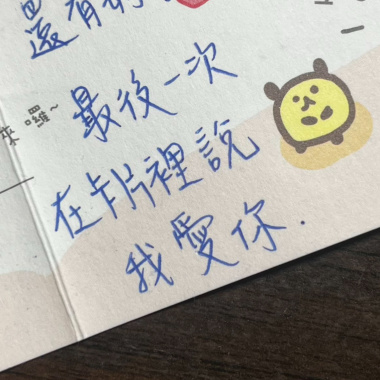 還有
來囉~
最後一次
在卡片裡說
我愛你.